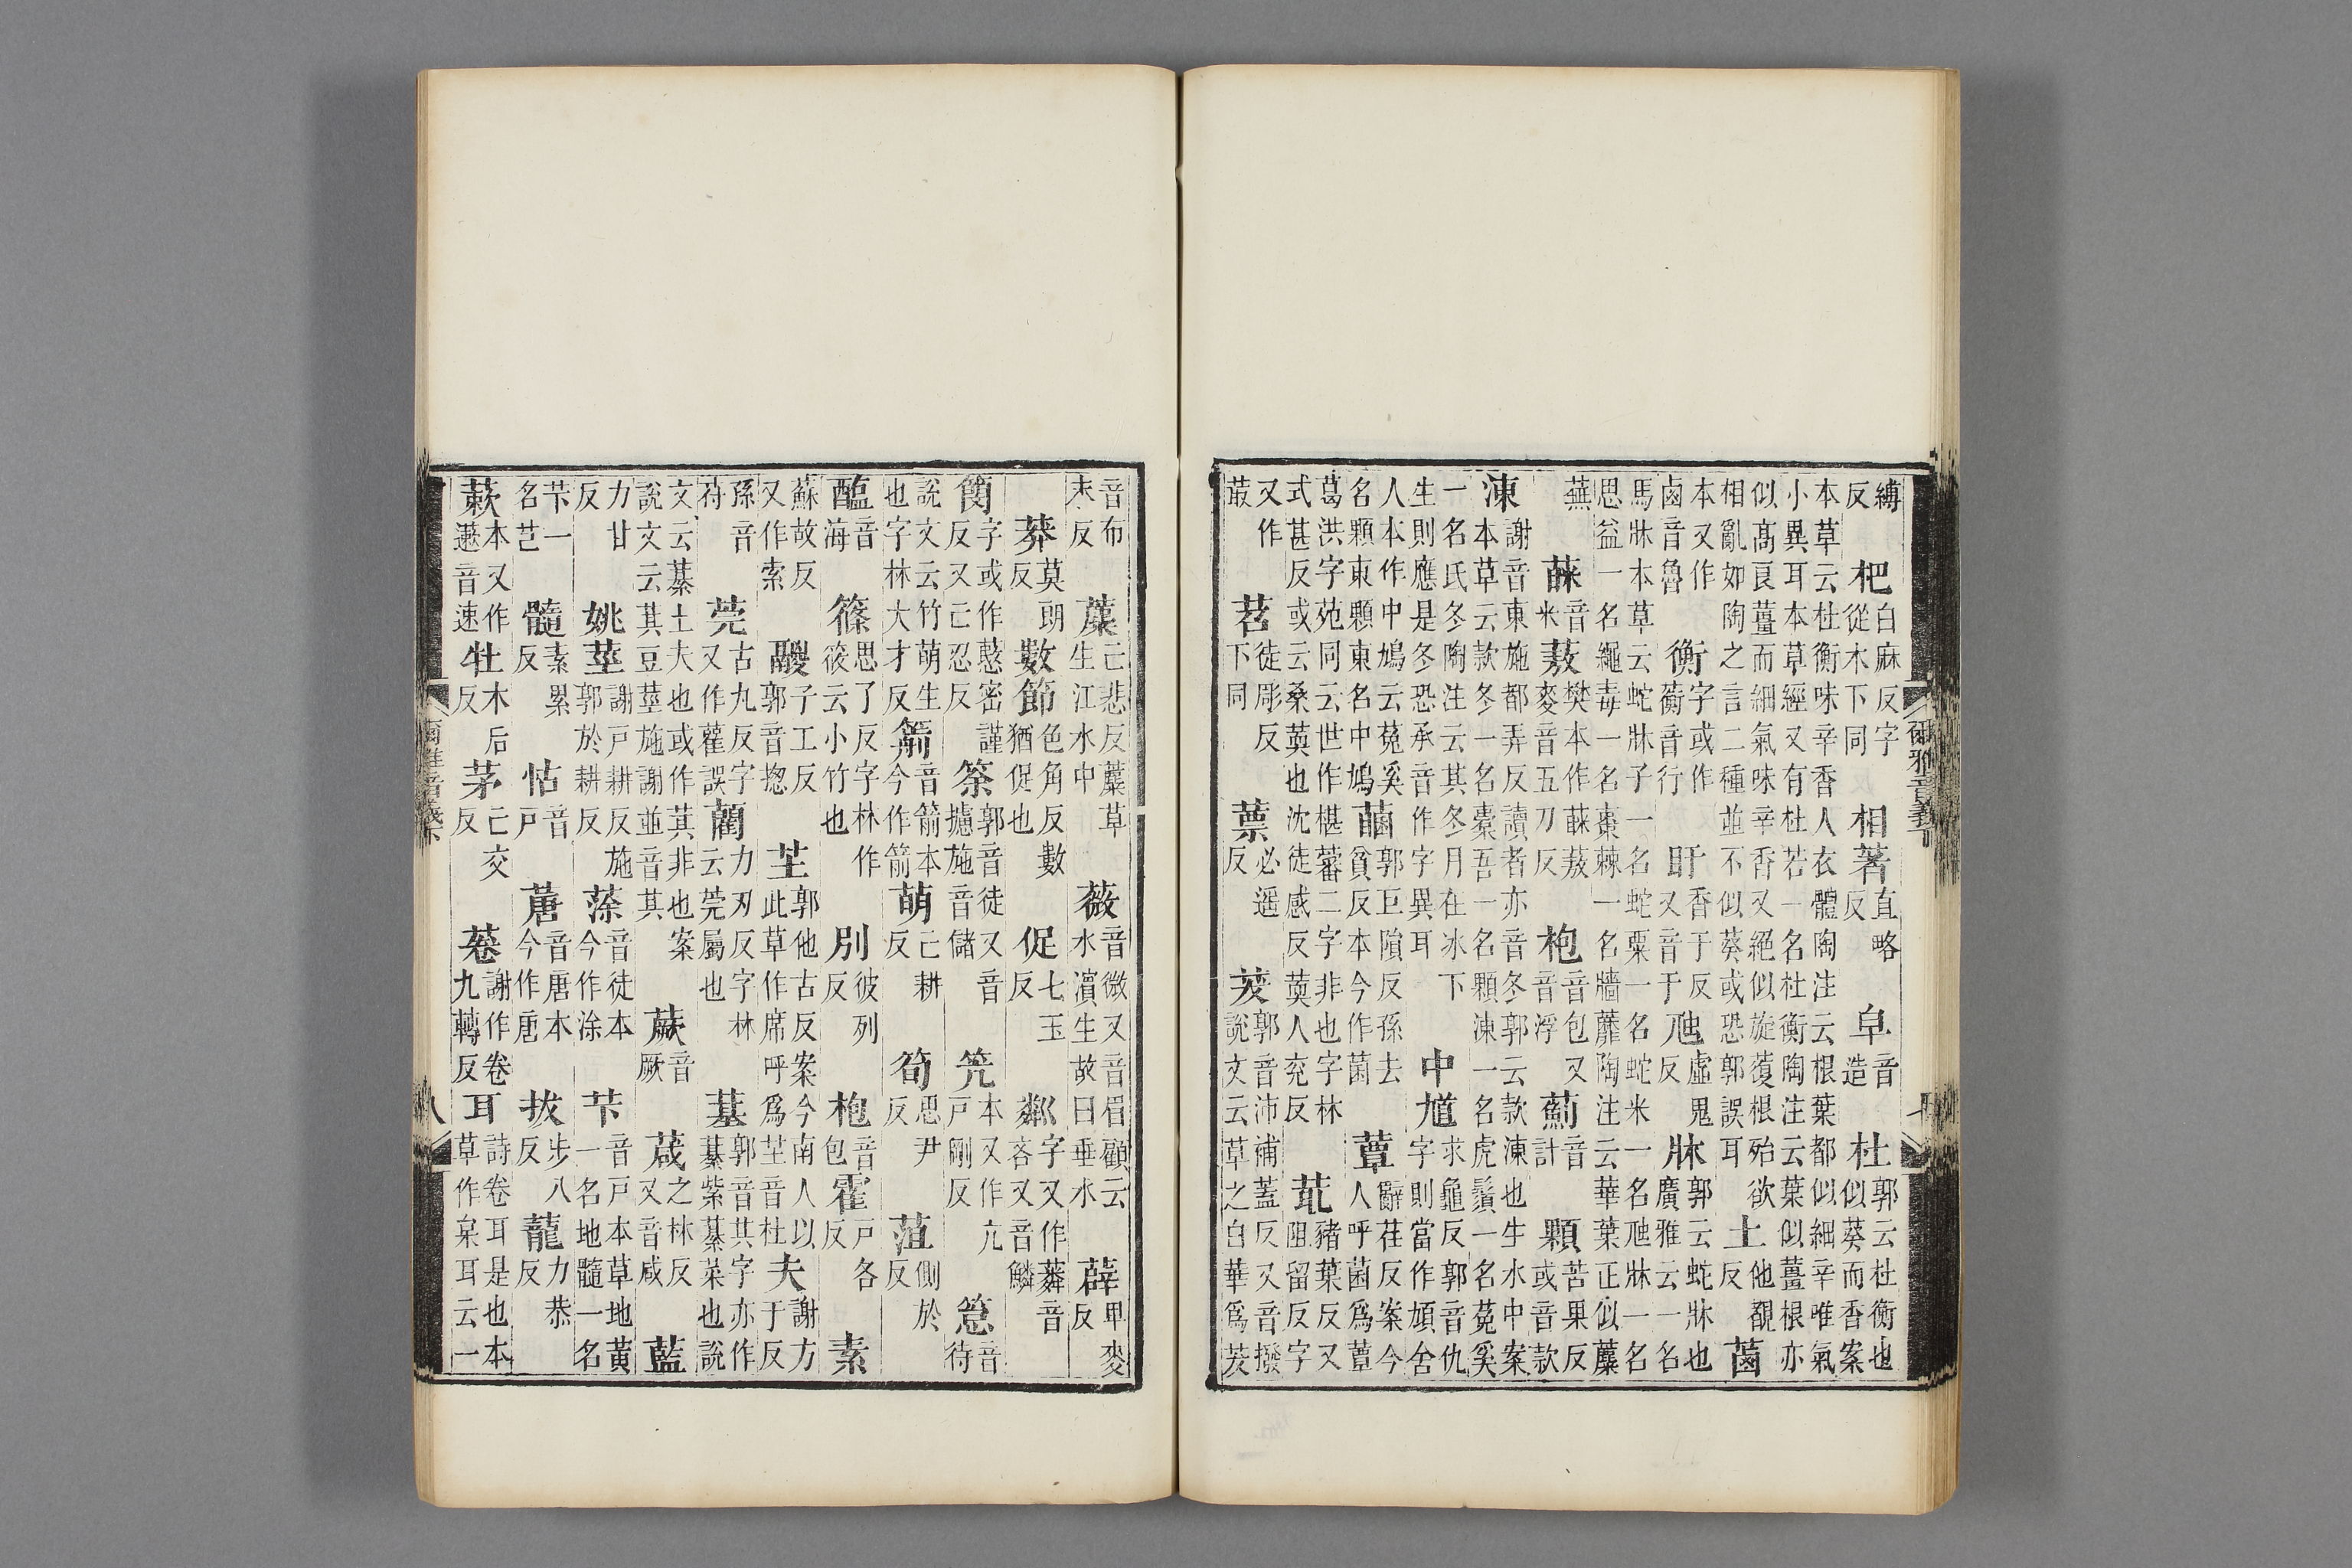 縛反 杷 白麻反字從木下同 相 著 直略反 皁 音造 杜 郭云杜衡也似葵而香案
本草云杜衡味辛香人衣體陶注云根葉都似細辛唯氣小異耳本草經又有杜若一名杜衡陶注云葉似薑根亦
似高良薑而細氣味辛香又絕似旋葍根殆欲相亂如陶之言二種並不似葵或恐郭誤耳 土 他覩反 菌
本又作鹵音魯 衡 字或作蘅音行 盱 香于反又音于 虺 虛鬼反 牀 郭云蛇牀也廣雅云一名
馬牀本草云蛇牀子一名蛇粟一名蛇米一名虺牀一名思益一名繩毒一名棗棘一名牆蘼陶注云華葉正似蘼
蕪 蔝 音米 蔜 樊本作蔝蔜麥音五刀反 枹 音包又音浮 薊 音計 顆 苦果反或音款
涷 謝音東施都弄反讀者亦音冬郭云款涷也生水中案本草云款冬一名橐吾一名顆涷一名虎鬚一名菟奚
一名氏冬陶注云其冬月在冰下生則應是冬恐承音作字異耳 中 馗 求龜反郭音仇字則當作頄舍
人本作中鳩云菟奚名顆東顆東名中鳩 菌 郭巨隕反孫去貧反本今作菌 蕈 辭荏反案今人呼菌爲蕈
葛洪字苑同云世作椹蕃二字非也字林式甚反或云桑萸也沈徒感反萸人兖反 豬葉反又阻留反字
又作菆 苕 徒彫反下同 蔈 必遥反 茇 郭音沛補蓋反又音撥說文云草之白華爲茇
爾雅音義下
音布末反 蘪 亡悲反蘪草生江水中 薇 音微又音眉顧云水濵生故曰垂水 薜 卑麥反
莽 莫朗反 數 節 色角反數猶促也 促 七玉反 粼 字又作 音吝又音鱗
簢 字或作慜密謹反又亡忍反 筡 郭音徒又音攄施音儲 笐 本又作亢戶剛反 䈚 音待
說文云竹萌生也字林大才反 箭 音箭本今作箭 萌 亡耕反 筍 思尹反 菹 側於反
醢 音海 篠 思了反字林作筱云小竹也 別 彼列反 枹 音包 霍 戶各反 素
蘇故反又作索 鬷 子工反郭音揔 芏 郭他古反案今南人以此草作席呼爲芏音杜 夫 謝方于反
孫音苻 莞 古九反字又作雚誤 藺 力刃反字林云莞屬也 藄 郭音其字亦作綦紫綦菜也說
文云綦土夫也或作萁非也案說文云萁豆莖施謝並音其 蕨 音厥 葴 之林反又音咸 藍
力甘反 姚 莖 謝戶耕反施郭於耕反 蒤 音徒本今作涂 芐 音戶本草地黃一名地髓一名
芐一名芑 髓 素累反 怙 音戶 蓎 音唐本今作唐 拔 步八反 蘢 力恭反
蔌 本又作遬音速 牡 木后反 茅 亡交反 菤 謝作卷九轉反 耳 詩卷耳是也本草作枲耳云一
爾雅音義下 八